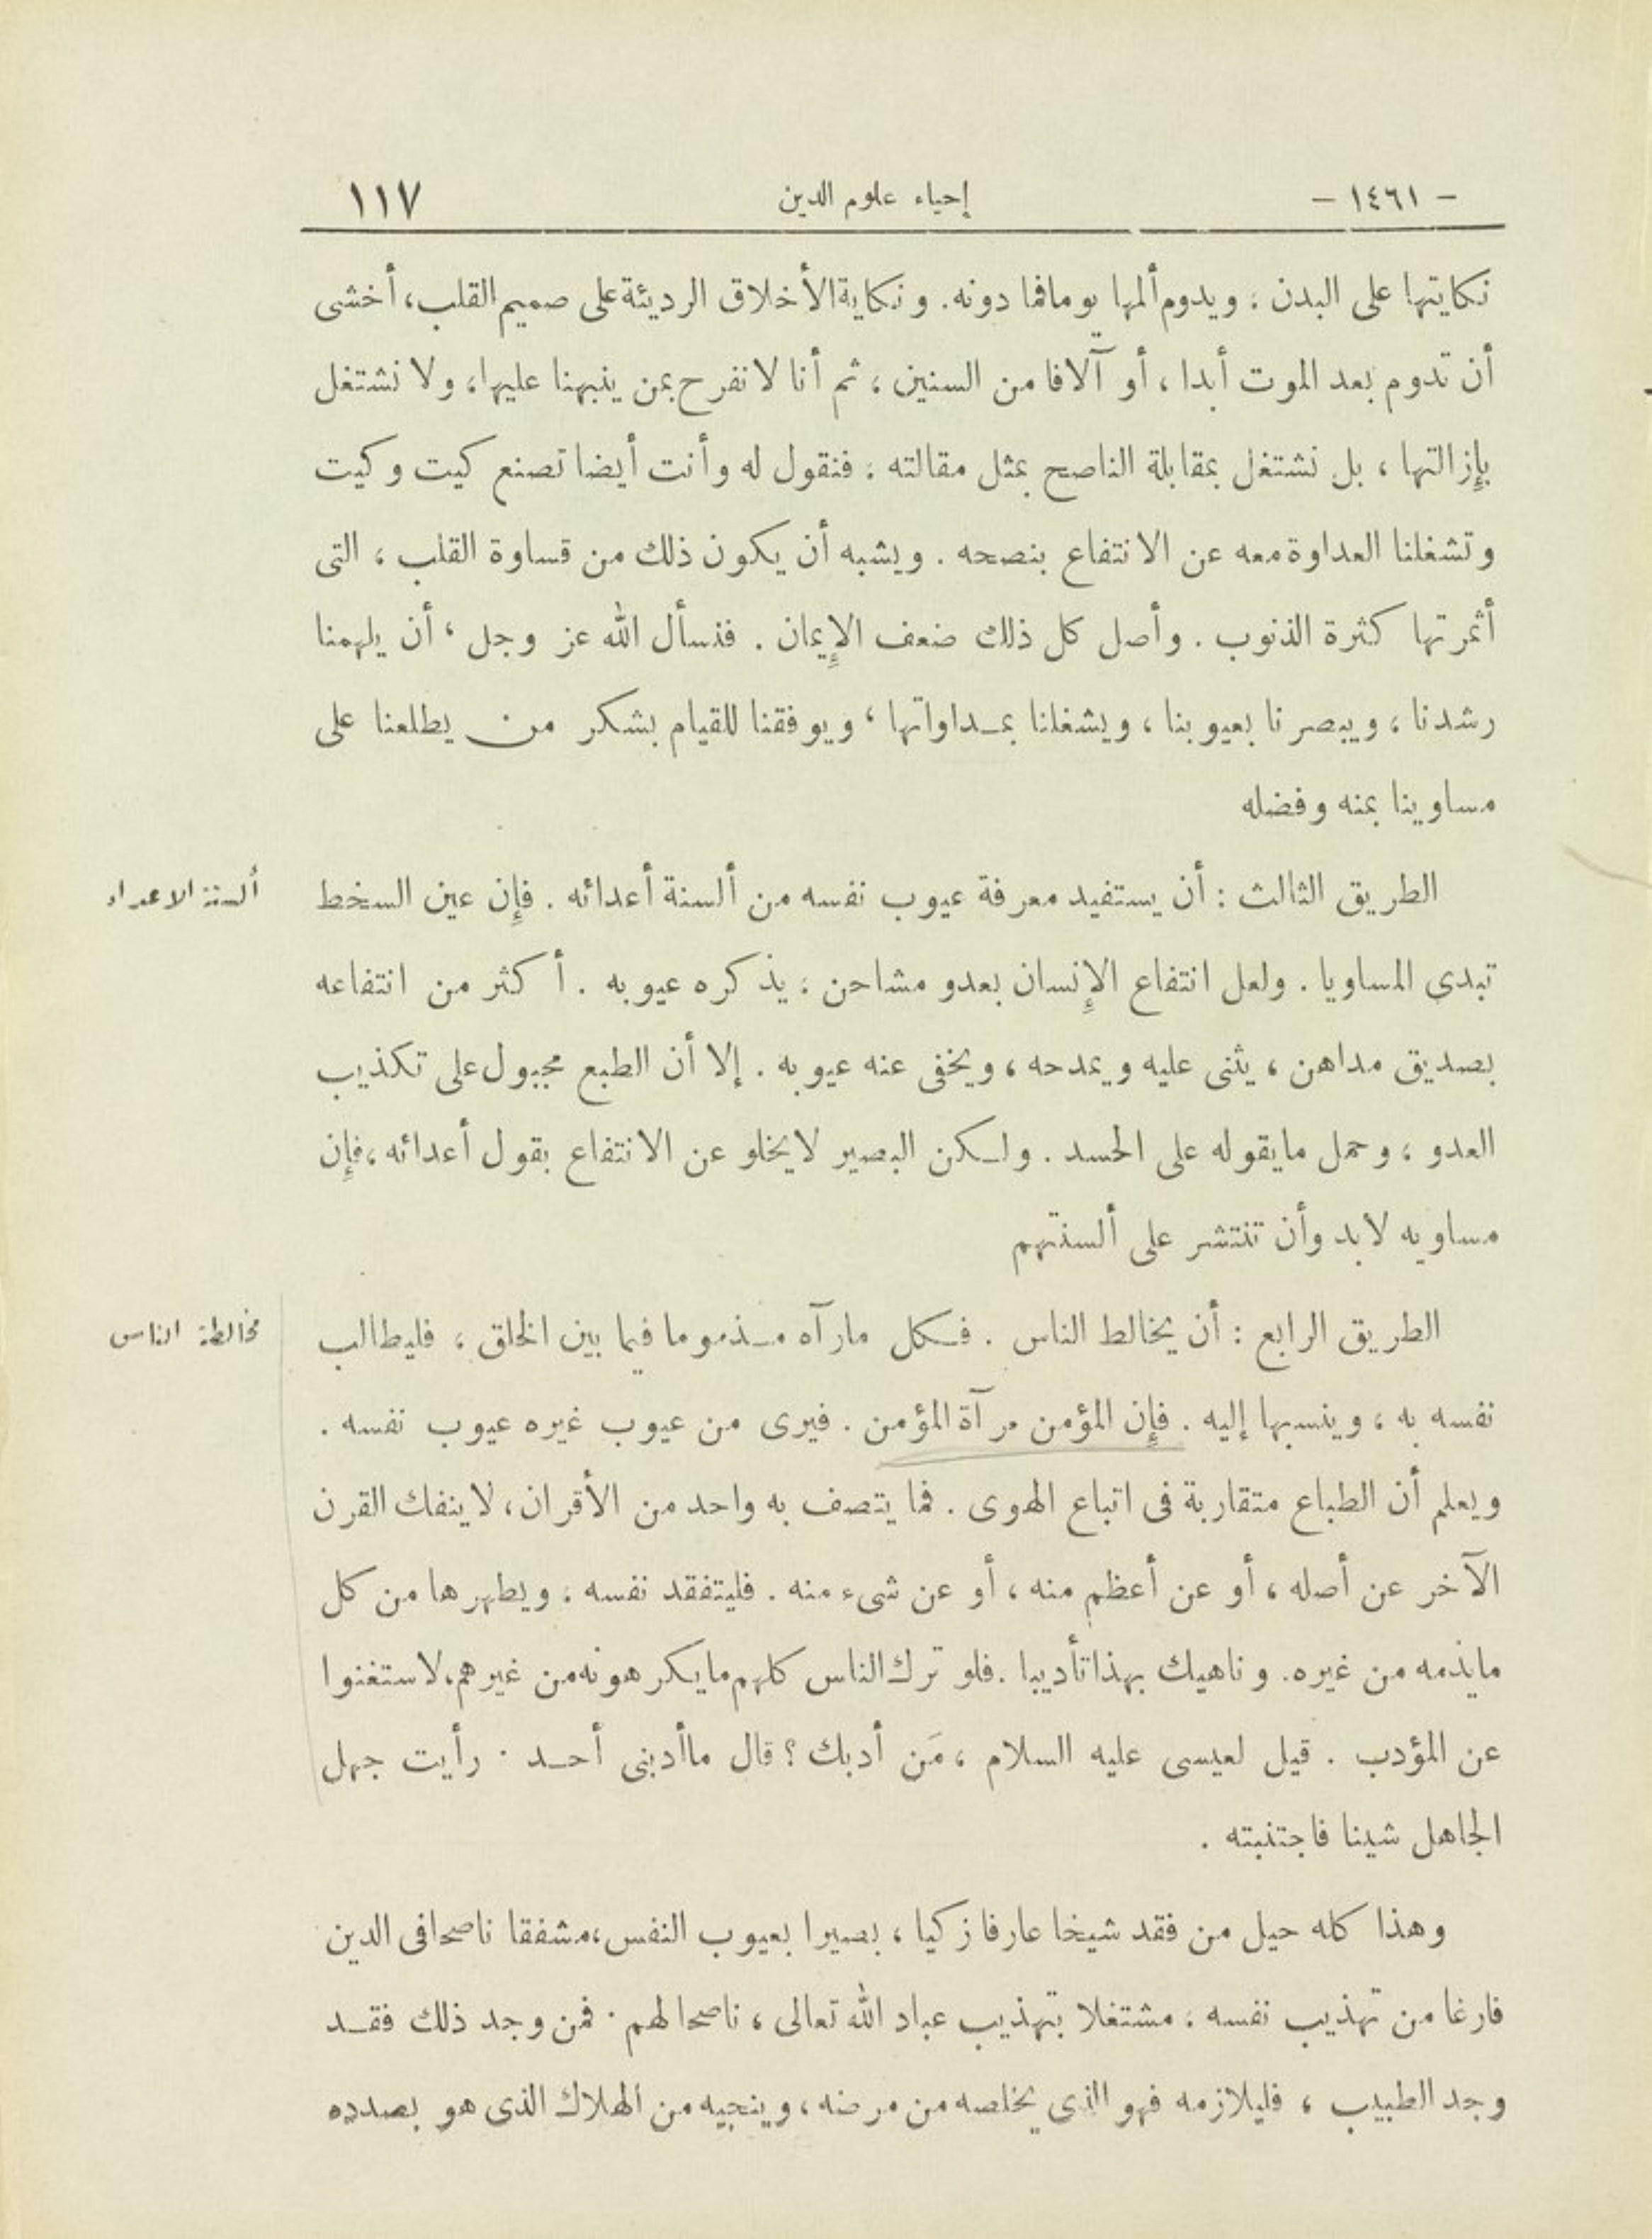 - ١٤٦١ - إحياء علوم الدين ١١٧
نكايتها على البدن ، ويدوم ألمها يوما فما دونه. ونكاية الأخلاق الرديئة على صميم القلب، أخشى
أن تدوم بعد الموت أبدا ، أو آلافا من السنين ، ثم أنا لا نفرح بمن ينبهنا عليها، ولا نشتغل
بإزالتها ، بل نشتغل بمقابلة الناصح بمثل مقالته ، فنقول له وأنت أيضا تصنع كيت وكيت
وتشغلنا العداوة معه عن الانتفاع بنصحه . ويشبه أن يكون ذلك من قساوة القلب ، التى
أثمرتها كثرة الذنوب . وأصل كل ذلك ضعف الإيمان . فنسأل الله عز وجل ، أن يلهمنا
رشدنا ، ويبصرنا بعيوبنا ، ويشغلنا بمـداواتها ، ويوفقنا للقيام بشكر من يطلعنا على
مساوينا بمنه وفضله
الطريق الثالث : أن يستفيد معرفة عيوب نفسه من ألسنة أعدائه . فإن عين السخط
ألسنة الاعداء
تبدى المساويا . ولعل انتفاع الإنسان بعدو مشاحن ، يذكره عيوبه . أكثر من انتفاعه
بصديق مداهن ، يثنى عليه ويمدحه ، ويخفى عنه عيوبه . إلا أن الطبع مجبول على تكذيب
العدو ، وحمل ما يقوله على الحسد . ولـكن البصير لا يخلو عن الانتفاع بقول أعدائه ، فإن
مساويه لابد وأن تنتشر على ألسنتهم
الطريق الرابع : أن يخالط الناس . فـكل ما رآه مـذموما فيما بين الخلق ، فليطالب
مخالطة الناس
نفسه به ، وينسبها إليه . فإن المؤمن مرآة المؤمن . فيرى من عيوب غيره عيوب نفسه .
ويعلم أن الطباع متقاربة فى اتباع الهوى . فما يتصف به واحد من الأقران ، لا ينفك القرن
الآخر عن أصله ، أو عن أعظم منه ، أو عن شىء منه . فليتفقد نفسه ، ويطهرها من كل
ما يذمه من غيره. وناهيك بهذا تأديبا . فلو ترك الناس كلهم ما يكرهونه من غيرهم، لاستغنوا
عن المؤدب . قيل لعيسى عليه السلام ، مَن أدبك ؟ قال ما أدبنى أحـد . رأيت جهل
الجاهل شينا فاجتنبته .
وهذا كله حيل من فقد شيخا عارفا زكيا ، بصيرا بعيوب النفس، مشفقا ناصحا فى الدين
فارغا من تهذيب نفسه ، مشتغلا بتهذيب عباد الله تعالى ، ناصحا لهم . فمن وجد ذلك فقـد
وجد الطبيب ، فليلازمه فهو الذى يخلصه من مرضه ، وينجيه من الهلاك الذى هو بصدده